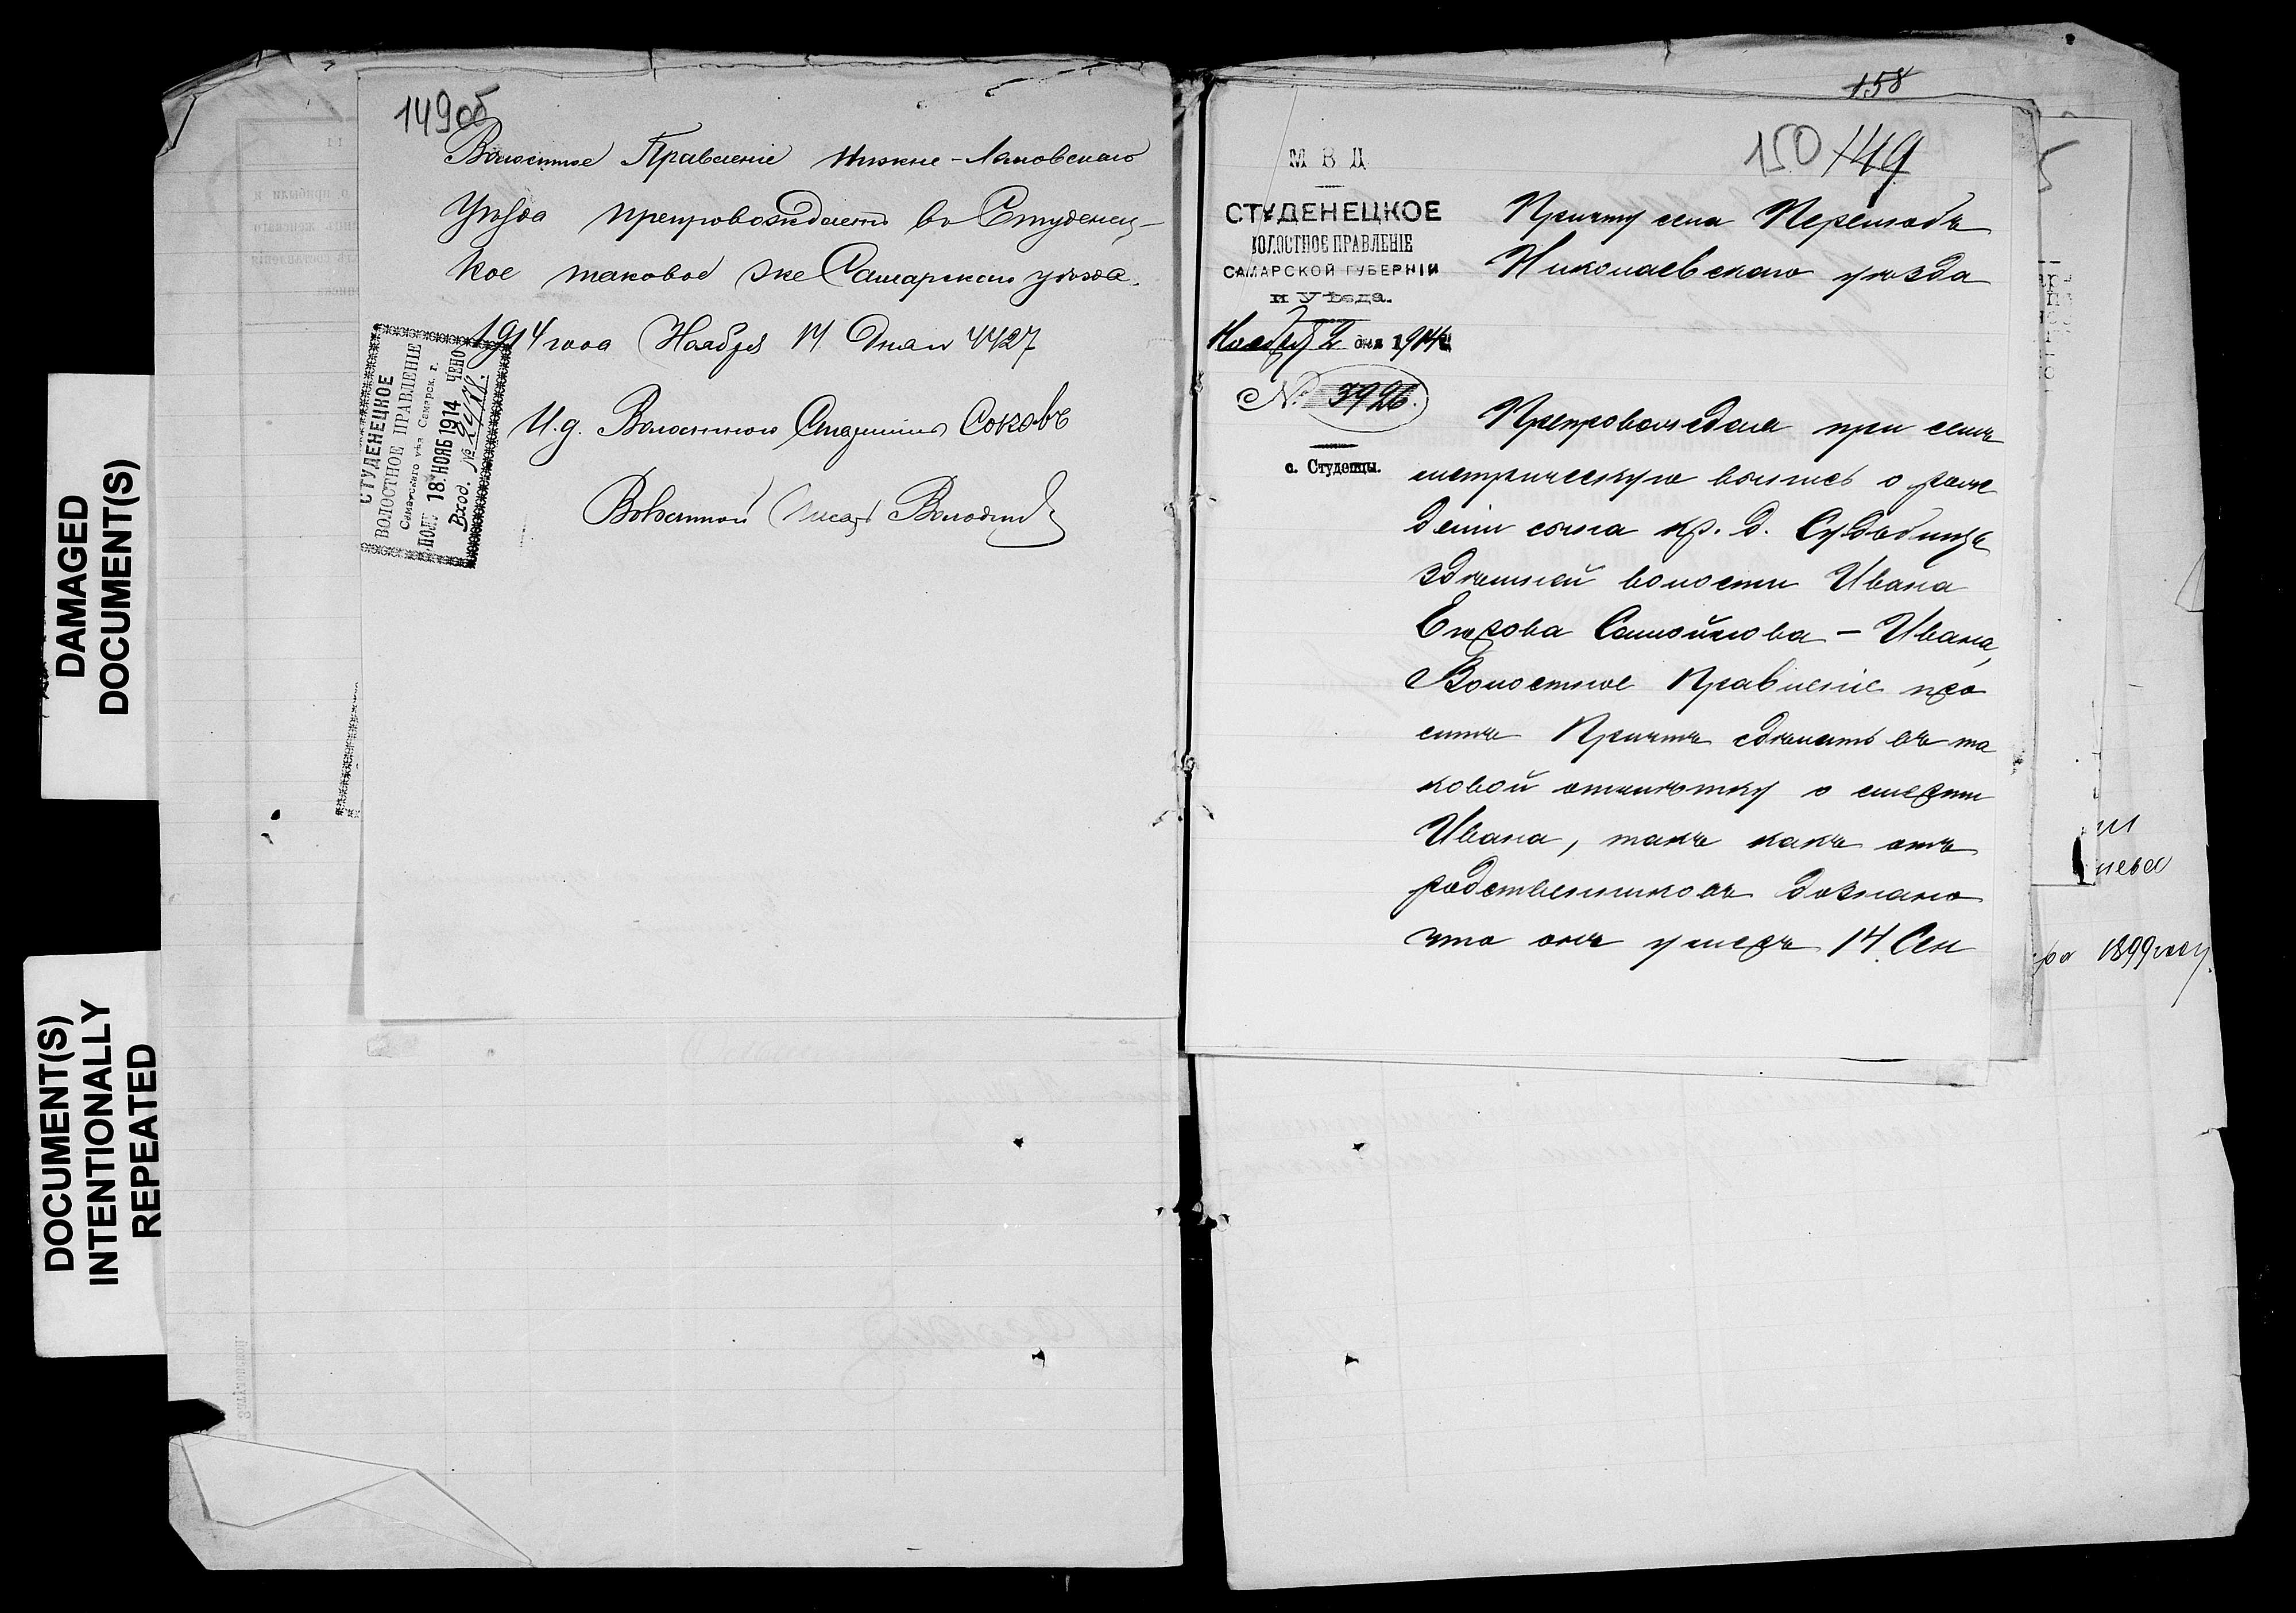 DAMAGED
DOCUMENT(S)
DOCUMENT(S)
INTENTIONALLY
REPEATED
149 об
Волостное Правленіе Нижне-Ломовскаго
Уѣзда препровождаетъ въ Студенец-
кое таковое же Самарскаго уѣзда.
1914 года Ноября 14 дня № 4427
И.д. Волостного Старшины Соковъ
Волостной Писарь Володинъ
СТУДЕНЕЦКОЕ
ВОЛОСТНОЕ ПРАВЛЕНІЕ
Самарскаго уѣз. Самарск. г.
ПОЛУ 18 НОЯБ 1914 ЧЕНО
Вход. №
158
150 149
М В Д
СТУДЕНЕЦКОЕ
ВОЛОСТНОЕ ПРАВЛЕНІЕ
САМАРСКОЙ ГУБЕРНІИ
и Уѣзда.
Ноября 2 дня 1914 г.
№ 3926.
с. Студенцы.
Причту села
Николаевскаго уѣзда
Препровождая при семъ
метрическую выпись о рож
деніи сына кр. д.
здѣшней волости Ивана
Самойлова - Ивана,
Волостное Правленіе про
ситъ Причтъ сдѣлать въ та
ковой отмѣтку о смерти
Ивана, такъ какъ отъ
родственниковъ дознано
что онъ умеръ 14 Сен
1899 году.